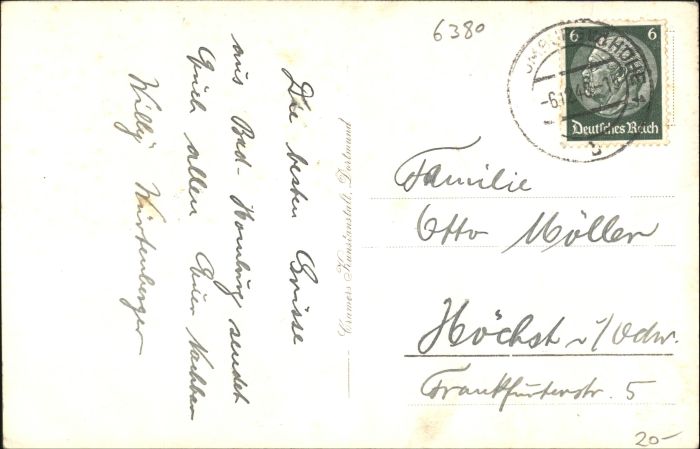 6380
6 6
Deutsches Reich
Die besten Grüsse
aus Bad-Homburg sendet
Euch allen Euer Nachbar
Willy Würtenberger
Cramers Kunstanstalt, Dortmund
Familie
Otto Möller
Höchst i/Odw.
Frankfurterstr. 5
20-